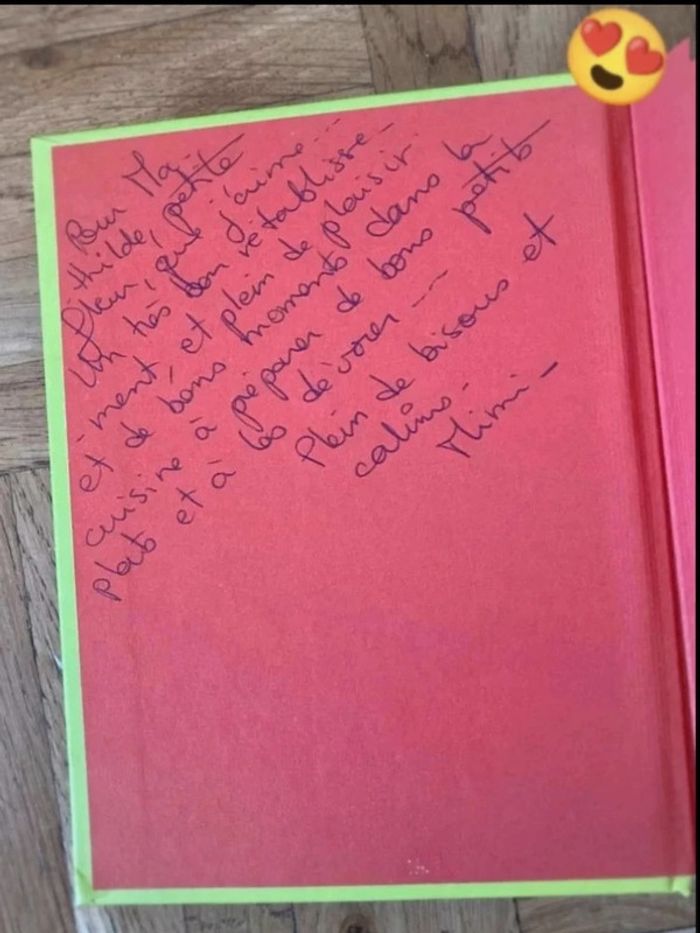 Pour Ma-
thilde, petite
fleur, que j'aime...
Un très bon rétablisse-
-ment, et plein de plaisir
et de bons moments dans la
cuisine à préparer de bons petits
plats et à les dévorer...
Plein de bisous et
calins.
Mimi.